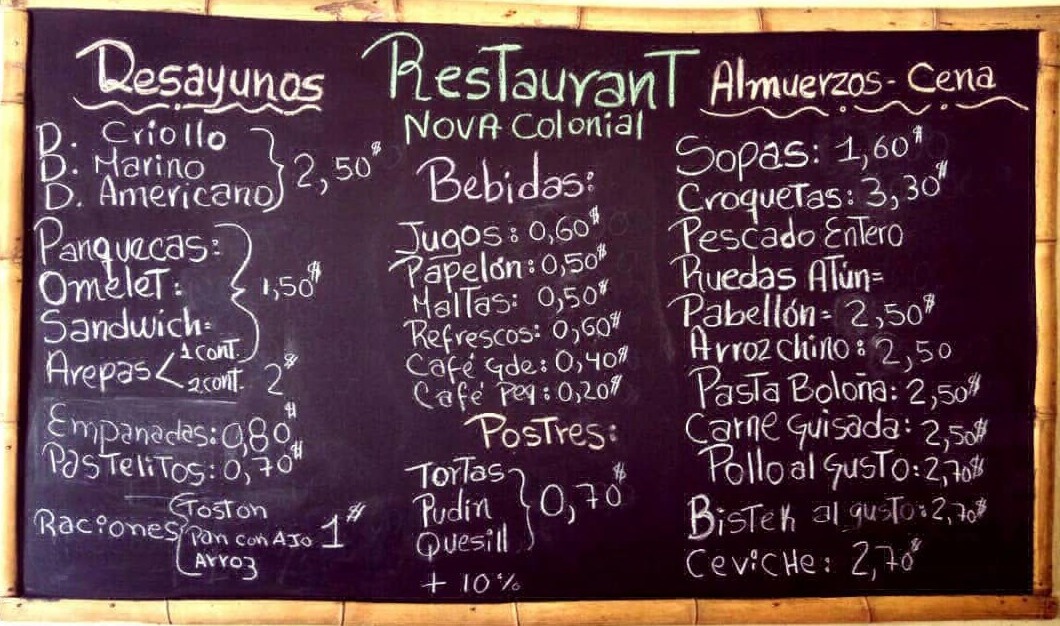 Desayunos
D. Criollo
D. Marino
D. Americano
2,50$
Panquecas:
Omelet:
Sandwich:
1,50$
Arepas < 1 cont.
2 cont. 2$
Empanadas: 0,80$
Pastelitos: 0,70$
Raciones
Toston
Pan con Ajo
Arroz
1$
Restaurant
Nova Colonial
Bebidas:
Jugos: 0,60$
Papelón: 0,50$
Maltas: 0,50$
Refrescos: 0,60$
Café Gde: 0,40$
Café Peq: 0,20$
Postres:
Tortas
Pudin
Quesill
0,70$
+ 10%
Almuerzos - Cena
Sopas: 1,60$
Croquetas: 3,30$
Pescado Entero
Ruedas Atún=
Pabellón= 2,50$
Arroz chino: 2,50
Pasta Boloña: 2,50$
Carne Guisada: 2,50$
Pollo al Gusto: 2,70$
Bistek al gusto: 2,70$
Ceviche: 2,70$